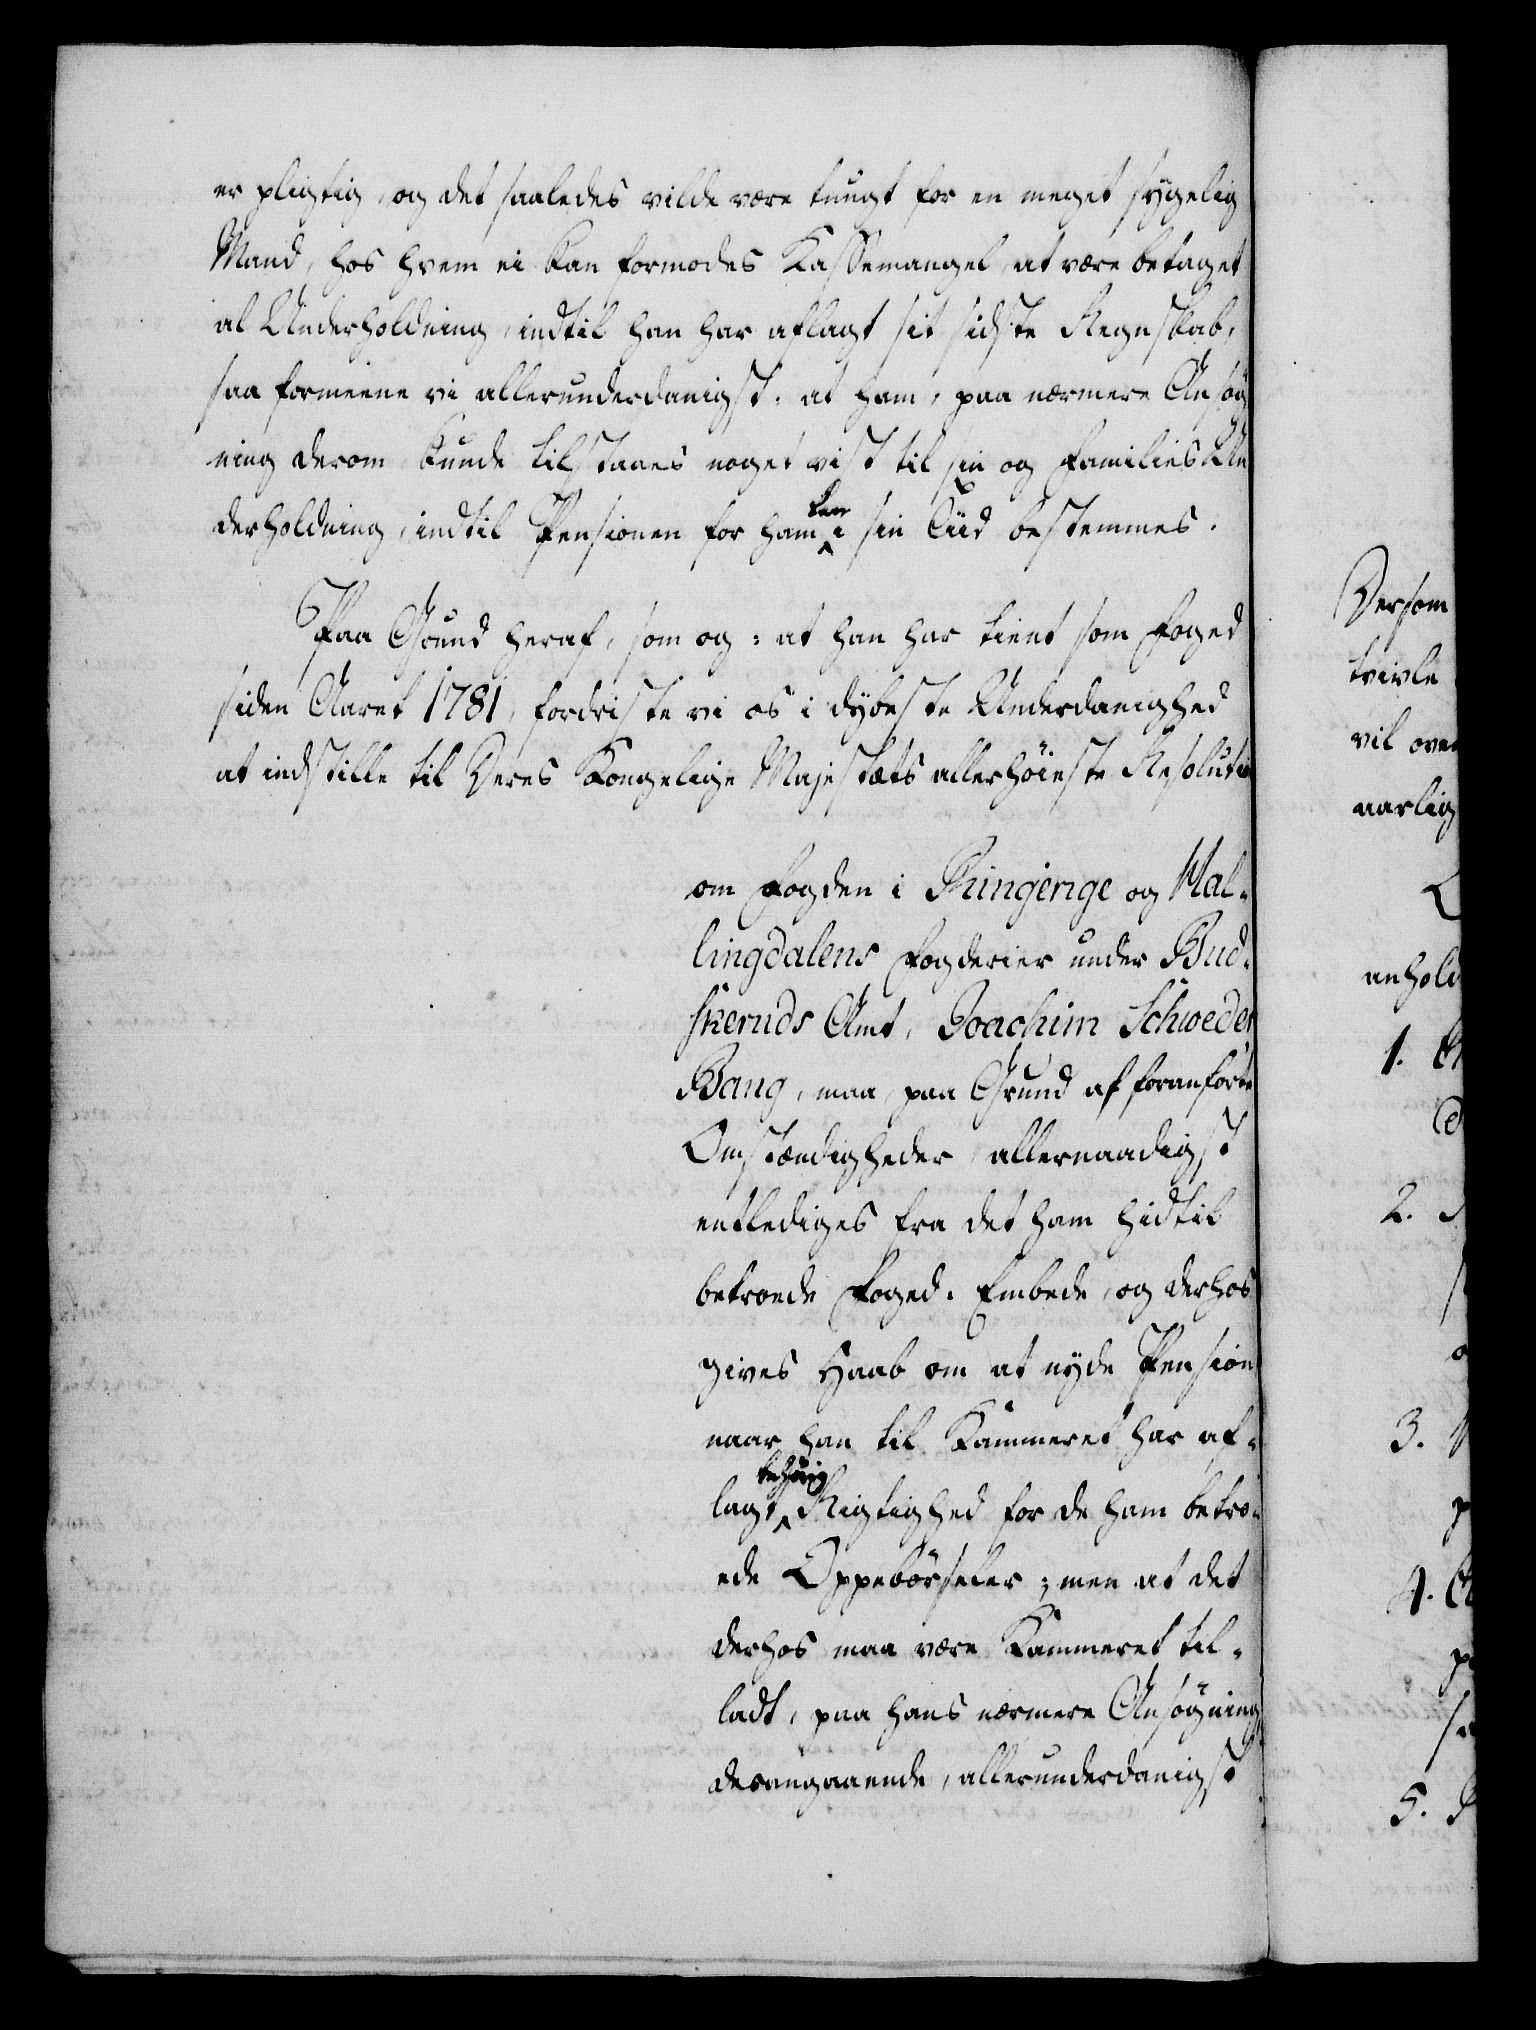 er pligtig, og det saaledes vilde være tungt for en meget sygelig
Mand, hos hvem ei kan formodes Kassemangel, at være betaget
al Underholdning, indtil han har aflagt sit sidste Regnskab,
saa formeene vi allerunderdanigst: at ham, paa nærmere Ansøg
ning derom kunde tilstaaes noget vist til sin og Families Un
derholdning, indtil Pensionen for ham kan i sin Tiid bestemmes.
Paa Grund heraf, som og: at han har tient som Foged
siden Aaret 1781, fordriste vi os i dybeste Underdanighed
at indstille til Deres Kongelige Majestæts allerhöieste Resolution
om Fogden i Ringerige og Hal-
lingdalens Fogderier under Bud-
skeruds Amt, Joachim Schweder
Bang, maa, paa Grund af foranförte
Omstændigheder, allernaadigst
entlediges fra det ham hidtil
betroede Foged-Embede, og derhos
gives Haab om at nyde Pension
naar han til Kammeret har af-
lagt behörig Rigtighed for de ham betro-
ede Oppebörseler; men at det
derhos maa være Kammeret til-
ladt, paa hans nærmere Ansögning
desangaaende, allerunderdanigst
Dersom
tvivle
vil over
aarlig
anhold
1.
2.
3.
4.
5.